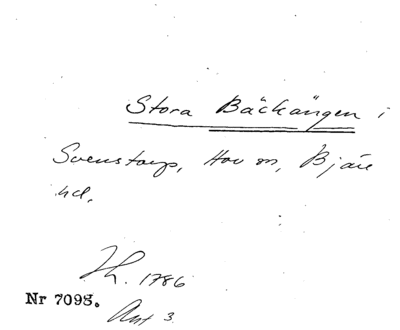 Stora Bäckängen i
Svenstorp, Hov sn, Bjäre
hd.
Th. 1786
Nr 7098.
Ant 3